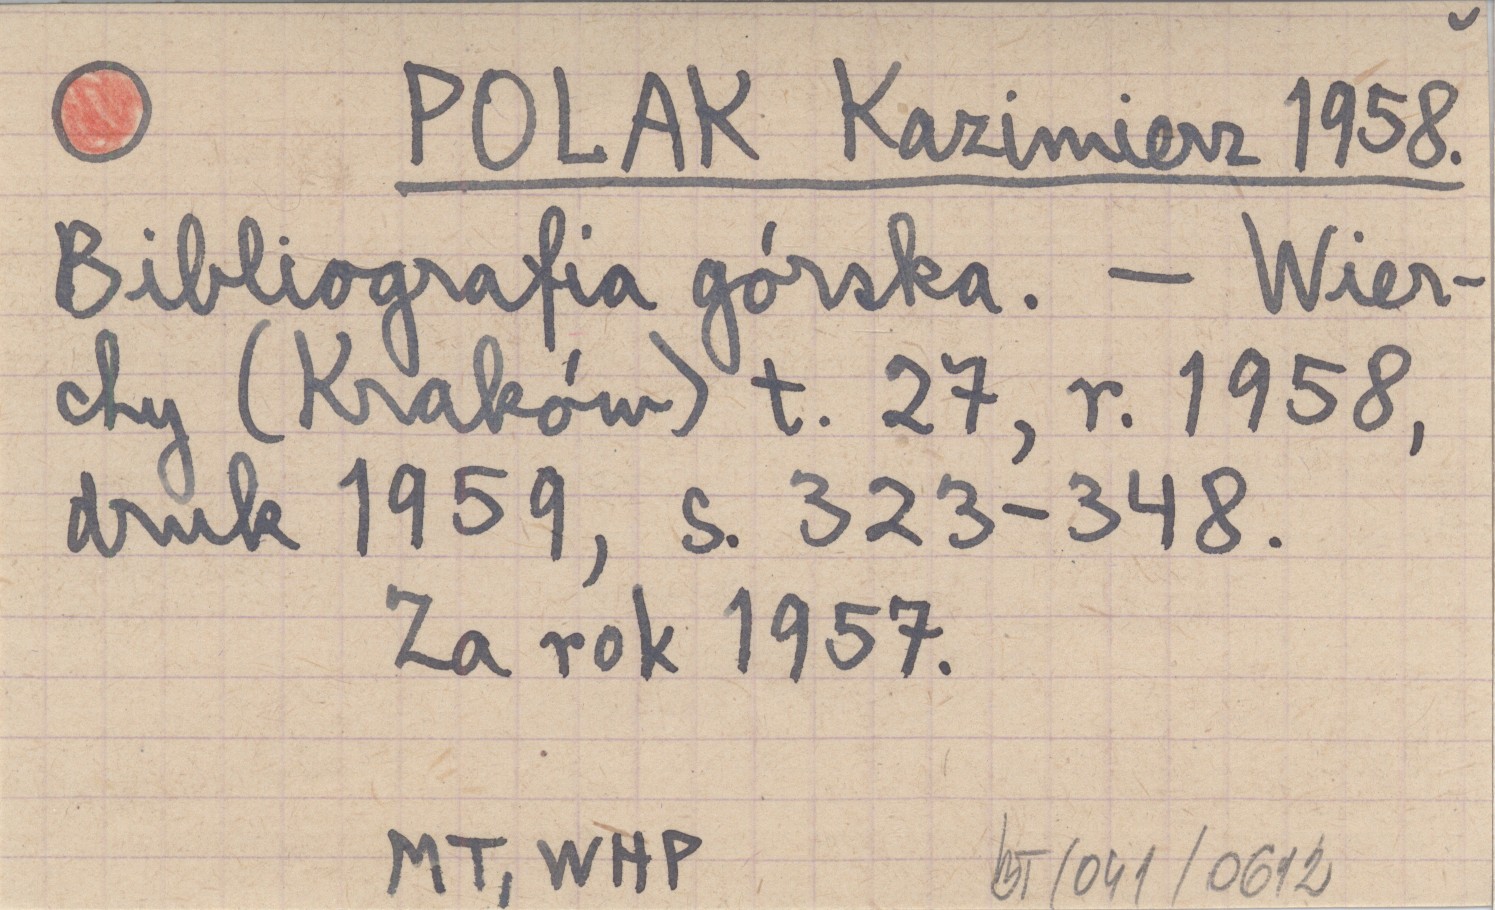 POLAK Kazimierz 1958.
Bibliografia górska. — Wier-
chy (Kraków) t. 27, r. 1958,
druk 1959, s. 323-348.
Za rok 1957.
MT, WHP
/041/0612